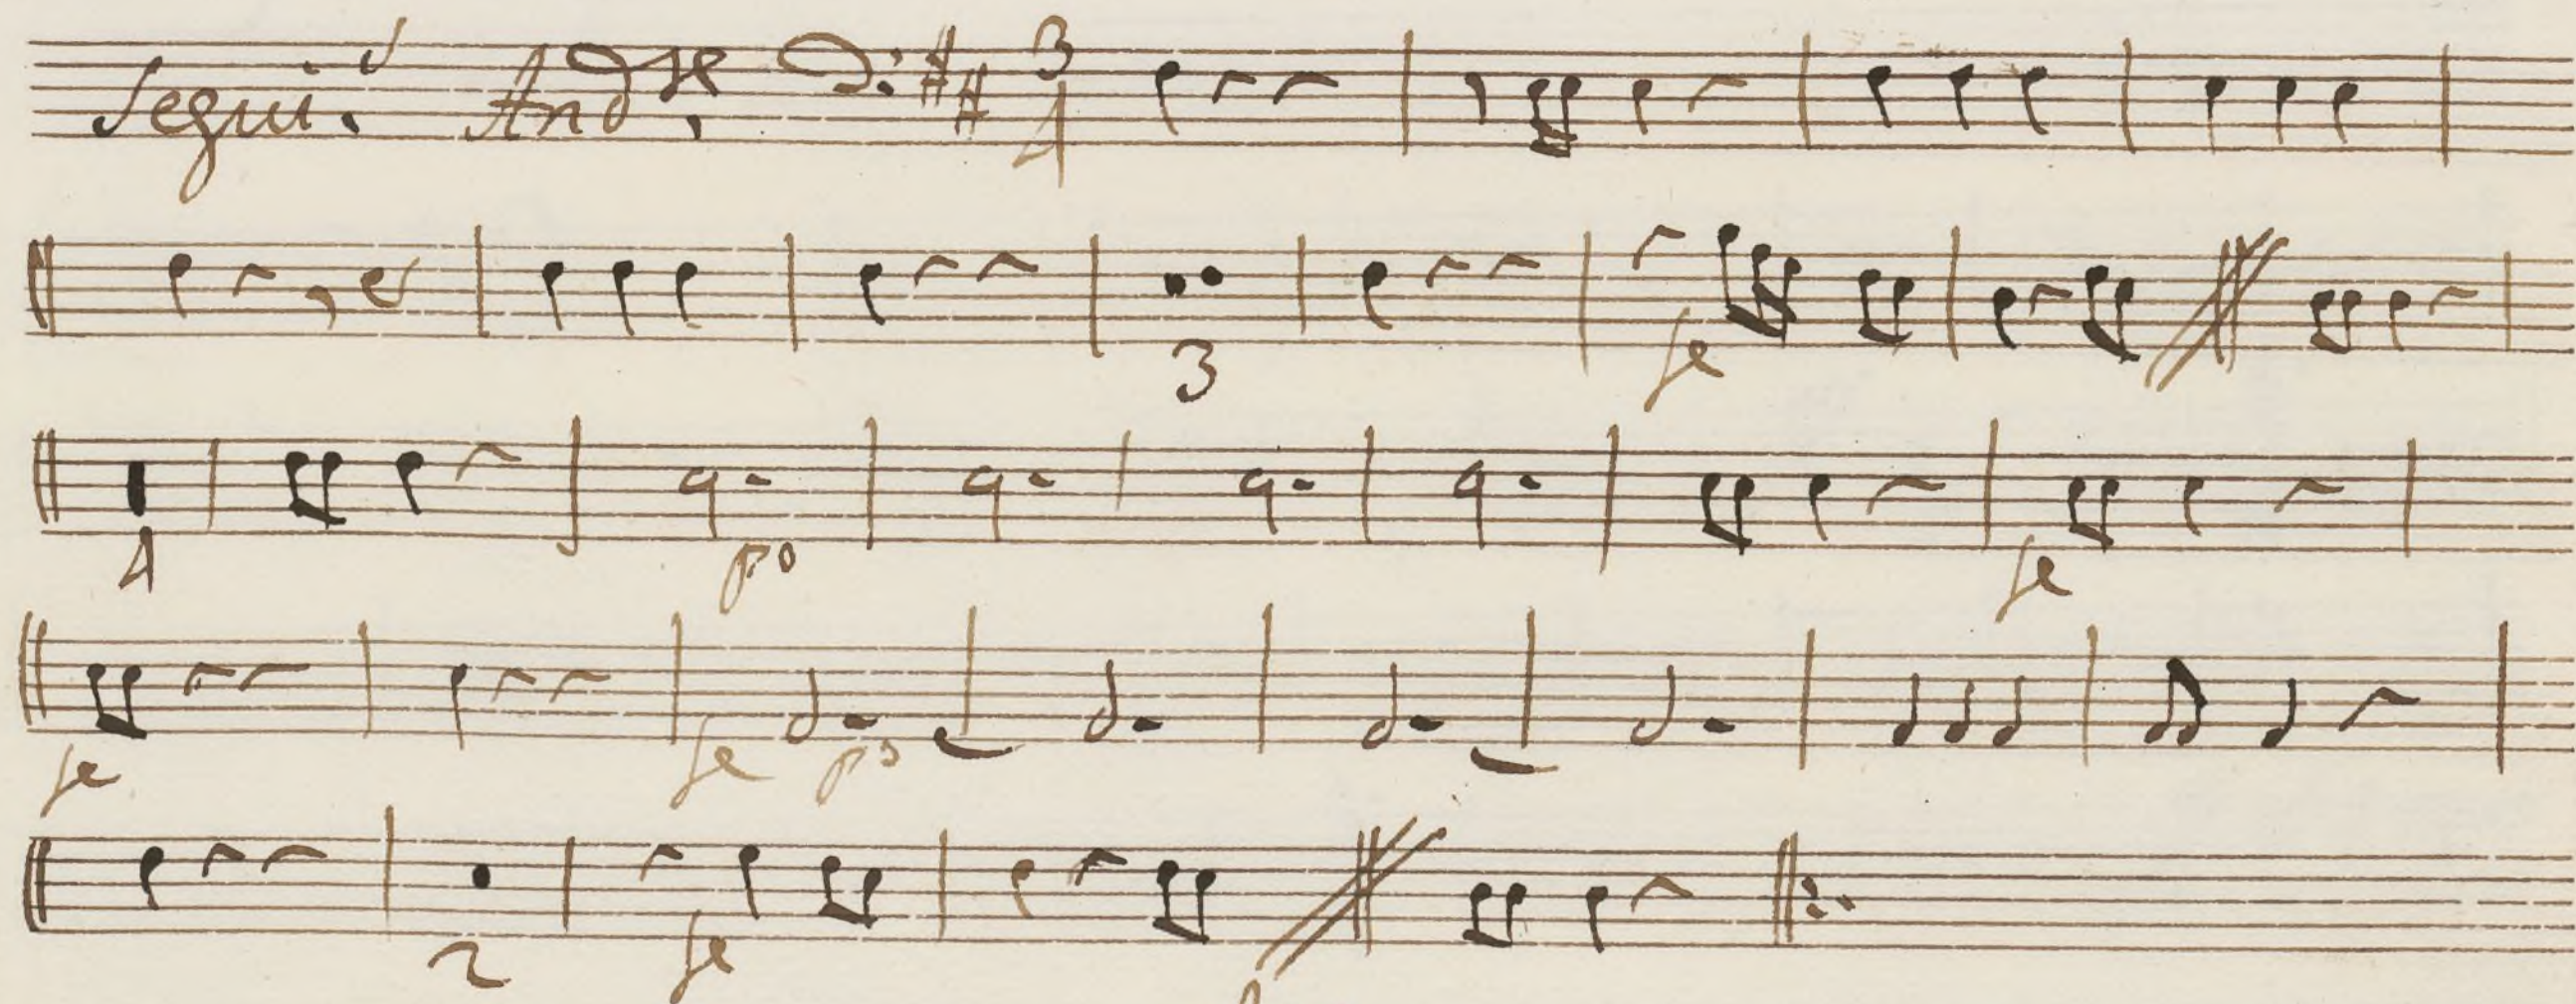 Segui.s And.te 3 4
3 fe
4 po fe
fe fe po
2 fe